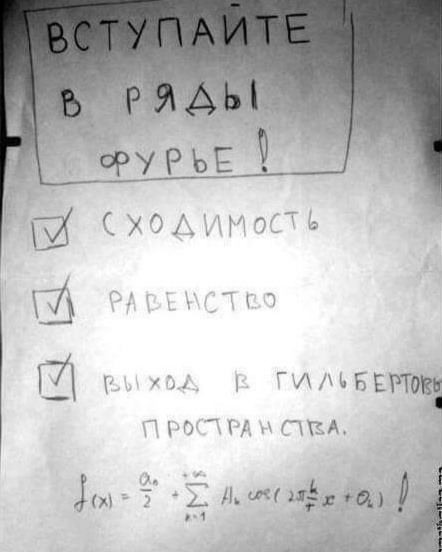 ВСТУПАЙТЕ
В РЯДЫ
ФУРЬЕ!
СХОДИМОСТЬ
РАВЕНСТВО
ВЫХОД В ГИЛЬБЕРТОВЫ
ПРОСТРАНСТВА.
f(x) = a₀/2 + +∞∑k=1 Aₖ cos(2π k/T x + θₖ)!